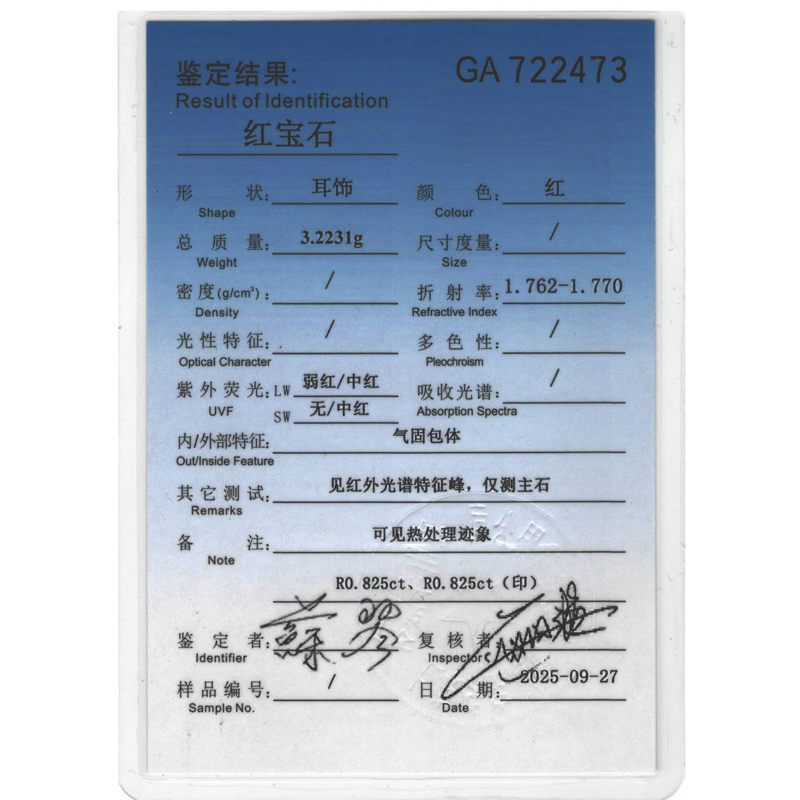 鉴定结果: GA 722473
Result of Identification
红宝石
形 状: 耳饰 颜 色: 红
Shape Colour
总 质 量: 3.2231g 尺寸度量: /
Weight Size
密 度(g/cm³): / 折 射 率: 1.762-1.770
Density Refractive Index
光性特征: / 多 色 性: /
Optical Character Pleochroism
紫外荧光: LW 弱红/中红 吸收光谱: /
UVF SW 无/中红 Absorption Spectra
内/外部特征: 气固包体
Out/Inside Feature
其它测试: 见红外光谱特征峰, 仅测主石
Remarks
备 注: 可见热处理迹象
Note
R0.825ct、R0.825ct (印)
鉴 定 者: 复 核 者
Identifier Inspector
样品编号: / 日 期: 2025-09-27
Sample No. Date